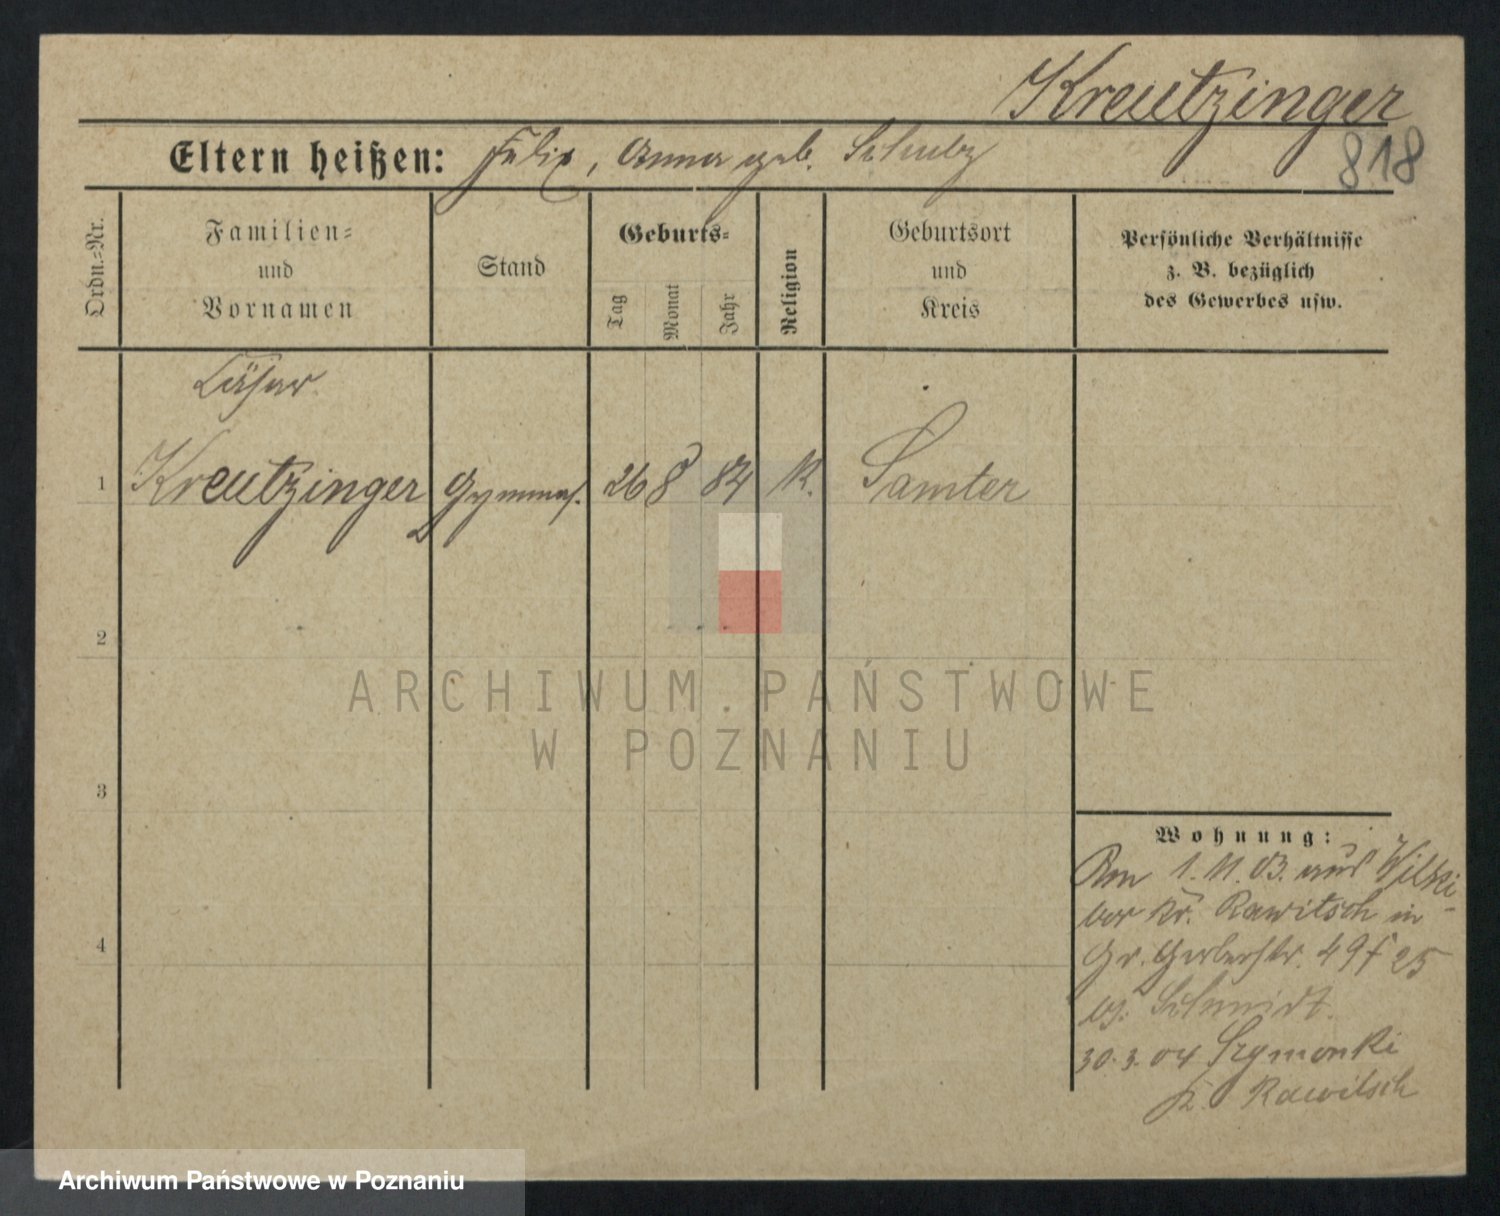 Kreutzinger
818
Eltern heißen: Felix, Anna geb. Schulz
Ordn.-Nr.
Familien-
und
Vornamen
Stand
Geburts-
Tag
Monat
Jahr
Religion
Geburtsort
und
Kreis
Persönliche Verhältnisse
z. B. bezüglich
des Gewerbes usw.
Cäsar
1 Kreutzinger Gymnas. 26 8 84 K. Samter
2
3
4
ARCHIWUM PAŃSTWOWE
W POZNANIU
Wohnung:
Am 1.11.03. aus Wilki-
bor Kr. Rawitsch in
Gr. Gerberstr. 49 f 25
bj. Schmidt.
30.3.04 Szymonki
K. Rawitsch
Archiwum Państwowe w Poznaniu